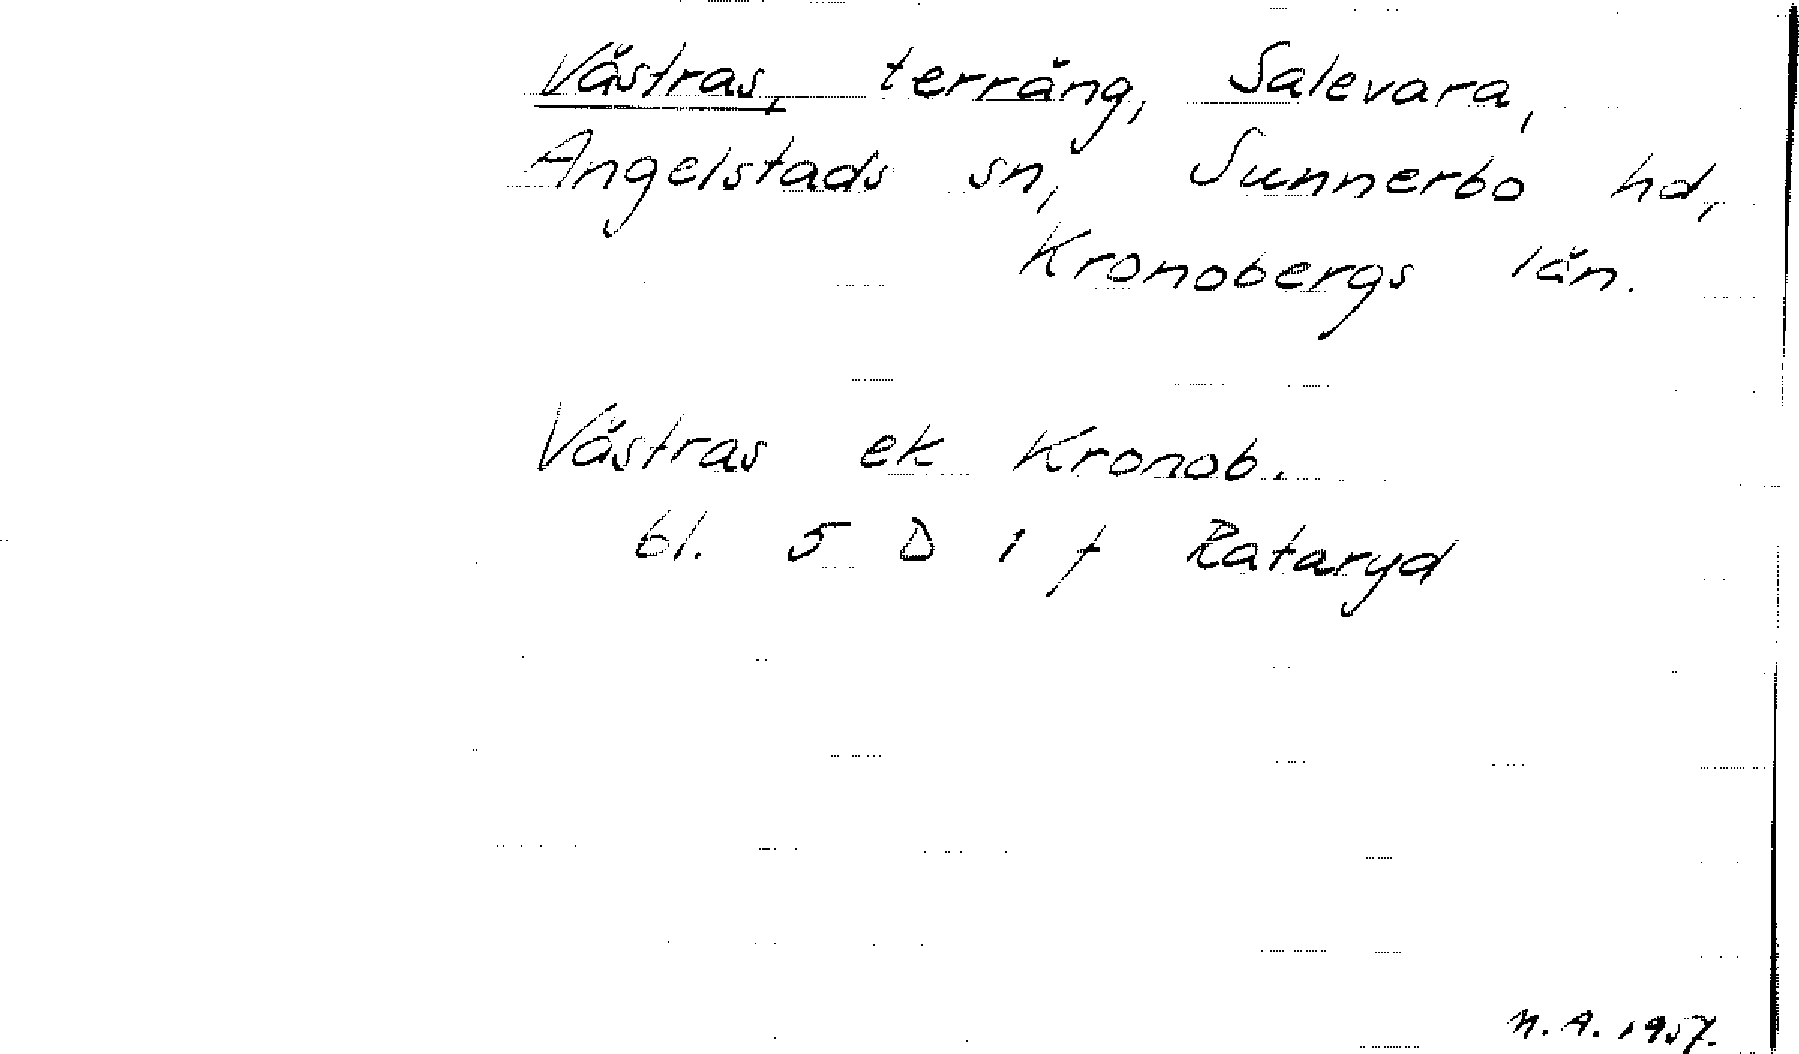 Västras, terräng, Salevara,
Angelstads sn, Sunnerbo hd,
Kronobergs län.
Västras ek Kronob.
bl. 5 D 1 f Rataryd
N. A. 1957.